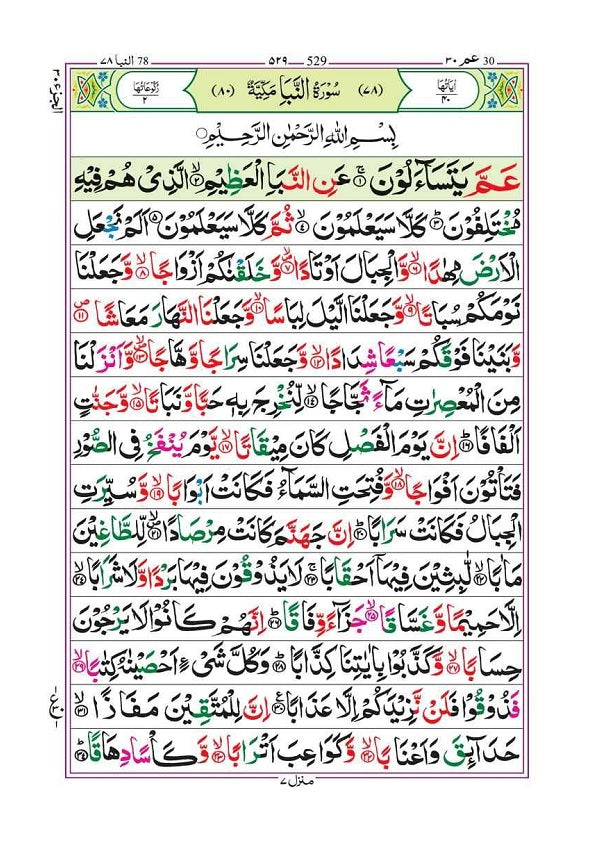 30 عم ۳۰ 529 ۵۲۹ 78 النبا ۷۸
الجزء ۳۰
اٰیَاتُهَا ۴۰ (۷۸) سُوْرَةُ النَّبَاِ مَكِّيَّةٌ (۸۰) رُكُوْعَاتُهَا ۲
بِسْمِ اللّٰهِ الرَّحْمٰنِ الرَّحِيْمِ
عَمَّ يَتَسَآءَلُوْنَ ۚ﴿۱﴾ عَنِ النَّبَاِ الْعَظِيْمِ ۙ﴿۲﴾ الَّذِىْ هُمْ فِيْهِ
مُخْتَلِفُوْنَ ؕ﴿۳﴾ كَلَّا سَيَعْلَمُوْنَ ۙ﴿۴﴾ ثُمَّ كَلَّا سَيَعْلَمُوْنَ ﴿۵﴾ اَلَمْ نَجْعَلِ
الْاَرْضَ مِهٰدًا ۙ﴿۶﴾ وَّالْجِبَالَ اَوْتَادًا ۙ﴿۷﴾ وَّخَلَقْنٰكُمْ اَزْوَاجًا ۙ﴿۸﴾ وَّجَعَلْنَا
نَوْمَكُمْ سُبَاتًا ۙ﴿۹﴾ وَّجَعَلْنَا الَّيْلَ لِبَاسًا ۙ﴿۱۰﴾ وَّجَعَلْنَا النَّهَارَ مَعَاشًا ﴿۱۱﴾
وَّبَنَيْنَا فَوْقَكُمْ سَبْعًا شِدَادًا ۙ﴿۱۲﴾ وَّجَعَلْنَا سِرَاجًا وَّهَّاجًا ۙ﴿۱۳﴾ وَّاَنْزَلْنَا
مِنَ الْمُعْصِرٰتِ مَآءً ثَجَّاجًا ۙ﴿۱۴﴾ لِّنُخْرِجَ بِهٖ حَبًّا وَّنَبَاتًا ۙ﴿۱۵﴾ وَّجَنّٰتٍ
اَلْفَافًا ؕ﴿۱۶﴾ اِنَّ يَوْمَ الْفَصْلِ كَانَ مِيْقَاتًا ۙ﴿۱۷﴾ يَّوْمَ يُنْفَخُ فِى الصُّوْرِ
فَتَاْتُوْنَ اَفْوَاجًا ۙ﴿۱۸﴾ وَّفُتِحَتِ السَّمَآءُ فَكَانَتْ اَبْوَابًا ۙ﴿۱۹﴾ وَّسُيِّرَتِ
الْجِبَالُ فَكَانَتْ سَرَابًا ؕ﴿۲۰﴾ اِنَّ جَهَنَّمَ كَانَتْ مِرْصَادًا ۙ﴿۲۱﴾ لِّلطَّاغِيْنَ
مَاٰبًا ۙ﴿۲۲﴾ لّٰبِثِيْنَ فِيْهَاۤ اَحْقَابًا ۚ﴿۲۳﴾ لَا يَذُوْقُوْنَ فِيْهَا بَرْدًا وَّلَا شَرَابًا ۙ﴿۲۴﴾
اِلَّا حَمِيْمًا وَّغَسَّاقًا ۙ﴿۲۵﴾ جَزَآءً وِّفَاقًا ؕ﴿۲۶﴾ اِنَّهُمْ كَانُوْا لَا يَرْجُوْنَ
حِسَابًا ۙ﴿۲۷﴾ وَّكَذَّبُوْا بِاٰيٰتِنَا كِذَّابًا ؕ﴿۲۸﴾ وَكُلَّ شَىْءٍ اَحْصَيْنٰهُ كِتٰبًا ۙ﴿۲۹﴾
فَذُوْقُوْا فَلَنْ نَّزِيْدَكُمْ اِلَّا عَذَابًا ﴿۳۰﴾ اِنَّ لِلْمُتَّقِيْنَ مَفَازًا ۙ﴿۳۱﴾
حَدَآئِقَ وَاَعْنَابًا ۙ﴿۳۲﴾ وَّكَوَاعِبَ اَتْرَابًا ۙ﴿۳۳﴾ وَّكَاْسًا دِهَاقًا ؕ﴿۳۴﴾
منزل ۷